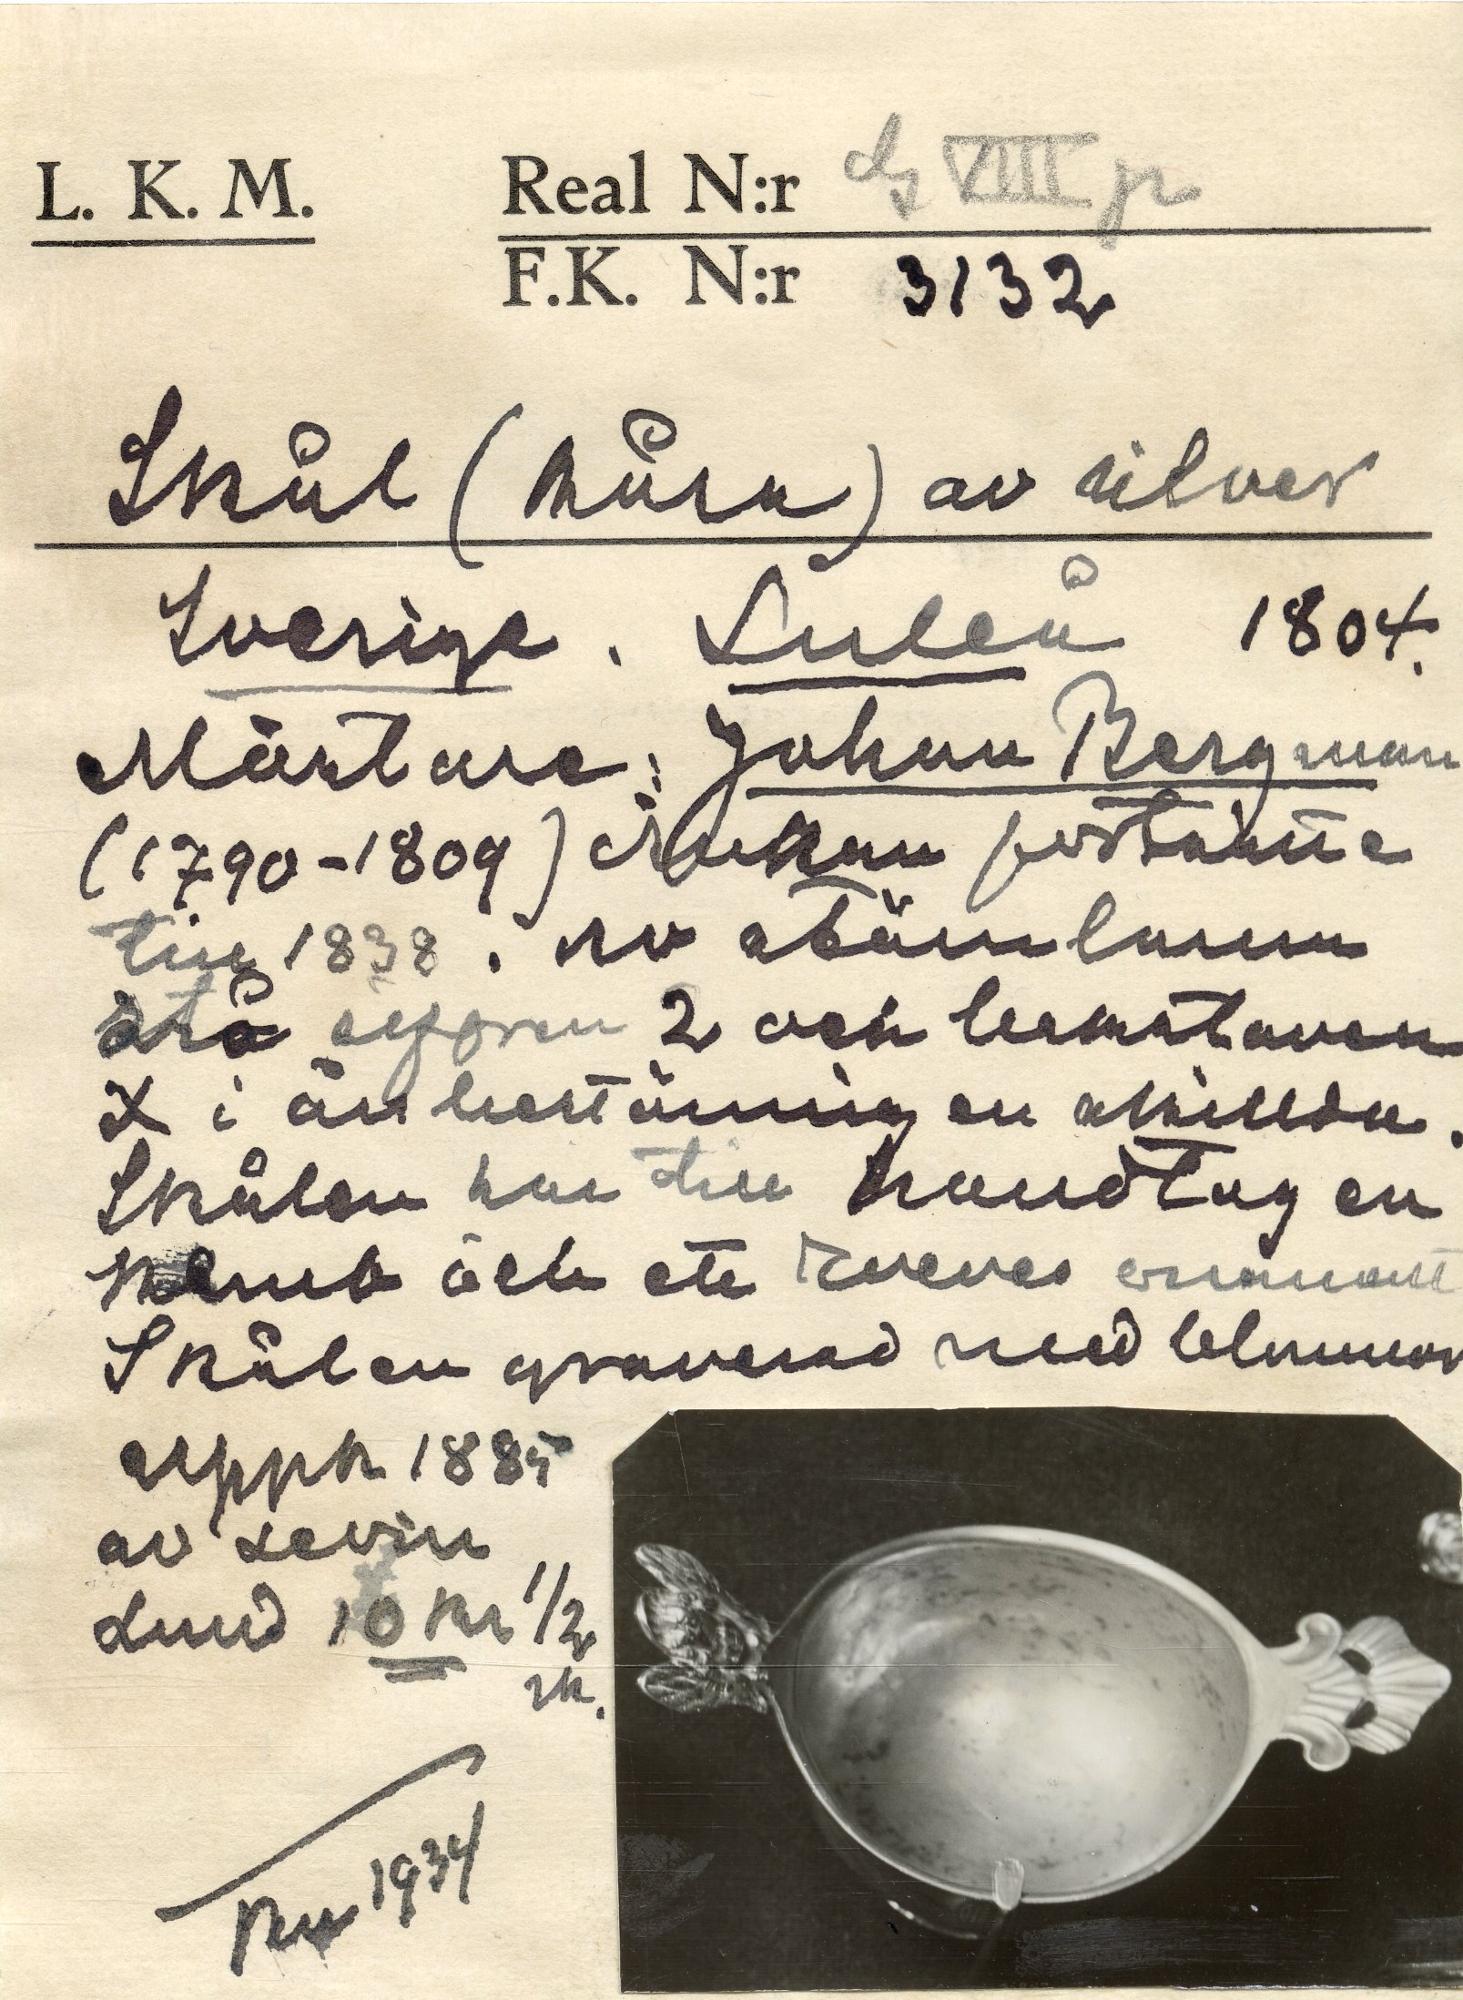 L. K. M.
Real N:r VIII
F.K. N:r 3132
Skål (kåsa) av silver
Sverige. Luleå 1804.
Mästare: Johan Bergman
(1790-1809) Änkan fortsatte
till 1838. av stämlarna
stå siffran 2 och bokstaven
X i än bestämningen skilda.
Skålen har till handtag en
och ett
Skålen graverad med blommor
Uppk 1885
av Levin
Lund 10 kr 1/2
sk.
1934